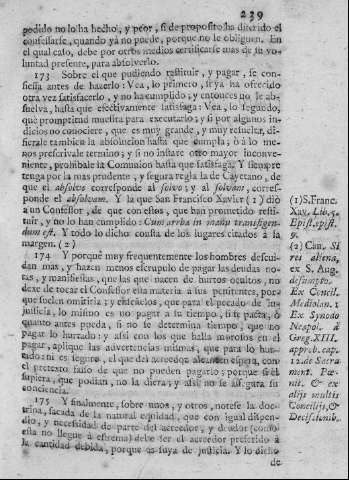 239
pedido no lo ha hecho, y peor, si de proposito ha diferido el
confessarse, quando yà no puede, porque no le obliguen. En
el qual caso, debe por otros medios certificarse mas de su vo-
luntad presente, para absolverlo.
173 Sobre el que pudiendo restituir, y pagar, se con-
fiessa antes de hacerlo: Vea, lo primero, si ya ha ofrecido
otra vez satisfacerlo, y no ha cumplido; y entonces no le ab-
suelva, hasta que efectivamente satisfaga: Vea, lo segundo,
què promptitud muestra para executarlo; y si por algunos in-
dicios no conociere, que es muy grande, y muy resuelta, di-
fierale tambien la absolucion hasta que cumpla; ò à lo me-
nos prescrivale termino; y si no instare otro mayor inconve-
niente, prohibale la Comunion hasta que satisfaga. Y siempre
tenga por la mas prudente, y segura regla la de Cayetano, de
que el absolvo corresponde al solvo; y al solvam, corres-
ponde el absolvam. Y la que San Francisco Xavier (1) diò
à un Confessor, de que con ellos, que han prometido resti-
tuir, y no lo han cumplido: Cum arrha in manu transigen-
dum est. Y todo lo dicho consta de los lugares citados à la
margen. (2)
174 Y porque muy frequentemente los hombres descui-
dan mas, y hacen menos escrupulo de pagar las deudas no-
tas, y manifiestas, que las que nacen de hurtos ocultos, no
dexe de tocar el Confessor esta materia à sus penitentes, por-
que suelen omitirla; y enseñelos, que para el pecado de in-
justicia, lo mismo es no pagar à su tiempo, si se pacta, ò
quanto antes pueda, si no se determina tiempo, que no
pagar lo hurtado; y assi con los que halla morosos en el
pagar, aplique las advertencias mismas, que para lo hur-
tado: ni es seguro, el que del acreedor alcancen espera, con
pretexto falso de que no pueden pagarlo; porque si èl
supiera, que podian, no la diera; y assi no se assegura su
conciencia.
175 Y finalmente, sobre unos, y otros, notese la doc-
trina, sacada de la natural equidad, que con igual dispen-
dio, y necessidad de parte del acreedor, y deudor (como
esta no llegue à estrema) debe ser el acreedor preferido à
la cantidad debida, porque es suya de justicia. Y lo dicho
de
(1) S. Franc.
Xav. Lib. 5.
Epist. epist.
9.
(2) Can. Si
res aliena,
ex S. Aug.
desumpto.
Ex Concil.
Mediolan. 1
Ex Synodo
Neapol. à
Greg. XIII.
approb. cap.
12. de Sacra
ment. Pœ-
nit. & ex
aliis multis
Conciliis, &
Decissionib.